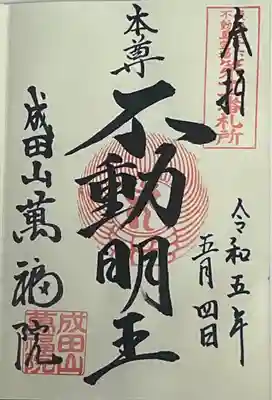 奉拝
令和五年
五月四日
本尊
不動明王
成田山萬福院
成田山
萬福院